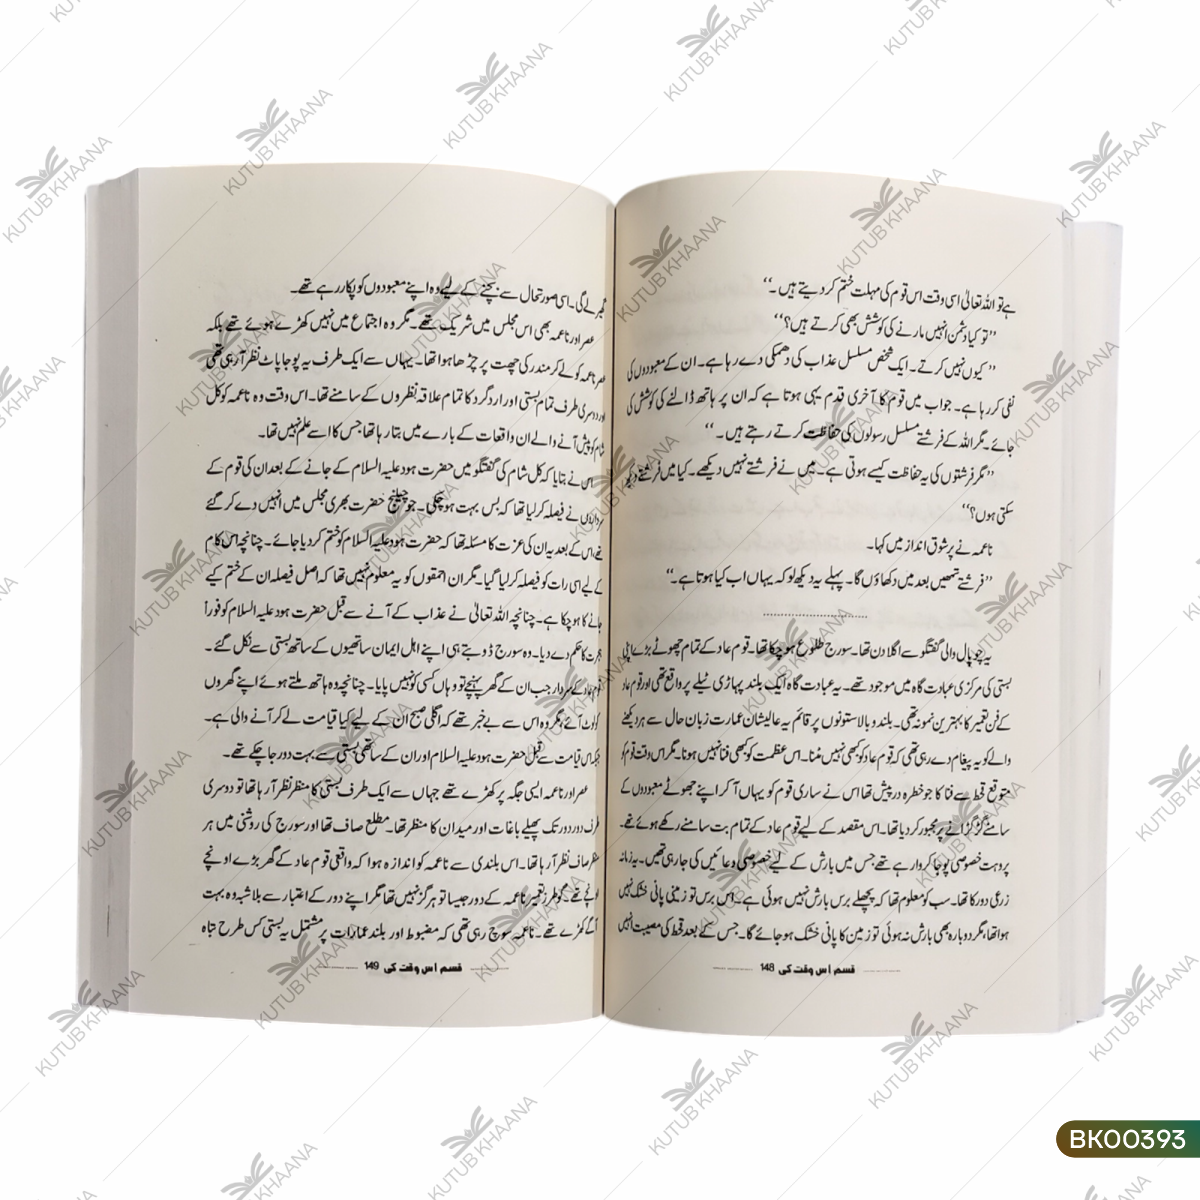 ہے تو اللہ تعالیٰ اسی وقت اس قوم کی مہلت ختم کر دیتے ہیں۔‘‘
’’تو کیا دشمن انہیں مارنے کی کوشش بھی کرتے ہیں؟‘‘
’’کیوں نہیں کرتے۔ ایک شخص مسلسل عذاب کی دھمکی دے رہا ہے۔ ان کے معبودوں کی
نفی کر رہا ہے۔ جواب میں قوم کا آخری قدم یہی ہوتا ہے کہ ان پر ہاتھ ڈالنے کی کوشش کی
جائے۔ مگر اللہ کے فرشتے مسلسل رسولوں کی حفاظت کرتے رہتے ہیں۔‘‘
’’مگر فرشتوں کی یہ حفاظت کیسے ہوتی ہے۔ میں نے فرشتے نہیں دیکھے۔ کیا میں فرشتے دیکھ
سکتی ہوں؟‘‘
ناعمہ نے پر شوق انداز میں کہا۔
’’فرشتے تمھیں بعد میں دکھاؤں گا۔ پہلے یہ دیکھ لو کہ یہاں اب کیا ہوتا ہے۔‘‘
..............................
یہ چوپال والی گفتگو سے اگلا دن تھا۔ سورج طلوع ہو چکا تھا۔ قوم عاد کے تمام چھوٹے بڑے اپنی
بستی کی مرکزی عبادت گاہ میں موجود تھے۔ یہ عبادت گاہ ایک بلند پہاڑی ٹیلے پر واقع تھی اور قوم عاد
کے فن تعمیر کا بہترین نمونہ تھی۔ بلند و بالا ستونوں پر قائم یہ عالیشان عمارت زبان حال سے ہر دیکھنے
والے کو یہ پیغام دے رہی تھی کہ قوم عاد کو کبھی نہیں مٹنا۔ اس عظمت کو کبھی فنا نہیں ہونا۔ مگر اس وقت قوم کو
متوقع قحط سے فنا کا جو خطرہ درپیش تھا اس نے ساری قوم کو یہاں آ کر اپنے جھوٹے معبودوں کے
سامنے گڑگڑانے پر مجبور کر دیا تھا۔ اس مقصد کے لیے قوم عاد کے تمام بت سامنے رکھے ہوئے تھے۔
پروہت خصوصی پوجا کروا رہے تھے جس میں بارش کے لیے خصوصی دعائیں کی جا رہی تھیں۔ یہ زمانہ
زرعی دور کا تھا۔ سب کو معلوم تھا کہ پچھلے برس بارش نہیں ہوئی ہے۔ اس برس تو زمینی پانی خشک نہیں
ہوا تھا، مگر دوبارہ بھی بارش نہ ہوئی تو زمین کا پانی خشک ہو جائے گا۔ جس کے بعد قحط کی مصیبت انہیں
قسم اس وقت کی 148
گھیر لے گی۔ اسی صورتحال سے بچنے کے لیے وہ اپنے معبودوں کو پکار رہے تھے۔
عصر اور ناعمہ بھی اس مجلس میں شریک تھے۔ مگر وہ اجتماع میں نہیں کھڑے ہوئے تھے بلکہ
عصر ناعمہ کو لے کر مندر کی چھت پر چڑھا ہوا تھا۔ یہاں سے ایک طرف یہ پوجا پاٹ نظر آ رہی تھی
اور دوسری طرف تمام بستی اور ارد گرد کا تمام علاقہ نظروں کے سامنے تھا۔ اس وقت وہ ناعمہ کو کل
شام کو پیش آنے والے ان واقعات کے بارے میں بتا رہا تھا جس کا اسے علم نہیں تھا۔
اس نے بتایا کہ کل شام کی گفتگو میں حضرت ہود علیہ السلام کے جانے کے بعد ان کی قوم کے
سرداروں نے فیصلہ کر لیا تھا کہ بس بہت ہو چکی۔ جو چیلنج حضرت بھری مجلس میں انہیں دے کر گئے
تھے، اس کے بعد یہ ان کی عزت کا مسئلہ تھا کہ حضرت ہود علیہ السلام کو ختم کر دیا جائے۔ چنانچہ اس کام
کے لیے اسی رات کو فیصلہ کر لیا گیا۔ مگر ان احمقوں کو یہ معلوم نہیں تھا کہ اصل فیصلہ ان کے ختم کیے
جانے کا ہو چکا ہے۔ چنانچہ اللہ تعالیٰ نے عذاب کے آنے سے قبل حضرت ہود علیہ السلام کو فوراً
ہجرت کا حکم دے دیا۔ وہ سورج ڈوبتے ہی اپنے اہل ایمان ساتھیوں کے ساتھ بستی سے نکل گئے۔
قوم عاد کے سردار جب ان کے گھر پہنچے تو وہاں کسی کو نہیں پایا۔ چنانچہ وہ ہاتھ ملتے ہوئے اپنے گھروں
کو لوٹ آئے، مگر وہ اس سے بے خبر تھے کہ اگلی صبح ان کے لیے کیا قیامت لے کر آنے والی ہے۔
جبکہ اس قیامت سے قبل حضرت ہود علیہ السلام اور ان کے ساتھی بستی سے بہت دور جا چکے تھے۔
عصر اور ناعمہ ایسی جگہ پر کھڑے تھے جہاں سے ایک طرف بستی کا منظر نظر آ رہا تھا تو دوسری
طرف دور دور تک پھیلے باغات اور میدان کا منظر تھا۔ مطلع صاف تھا اور سورج کی روشنی میں ہر
منظر صاف نظر آ رہا تھا۔ اس بلندی سے ناعمہ کو اندازہ ہوا کہ واقعی قوم عاد کے گھر بڑے اونچے
اونچے تھے۔ گو طرز تعمیر ناعمہ کے دور جیسا تو ہرگز نہیں تھا مگر اپنے دور کے اعتبار سے بلاشبہ وہ بہت
آگے کھڑے تھے۔ ناعمہ سوچ رہی تھی کہ مضبوط اور بلند عمارات پر مشتمل یہ بستی کس طرح تباہ
قسم اس وقت کی 149
KUTUB KHAANA
BK00393